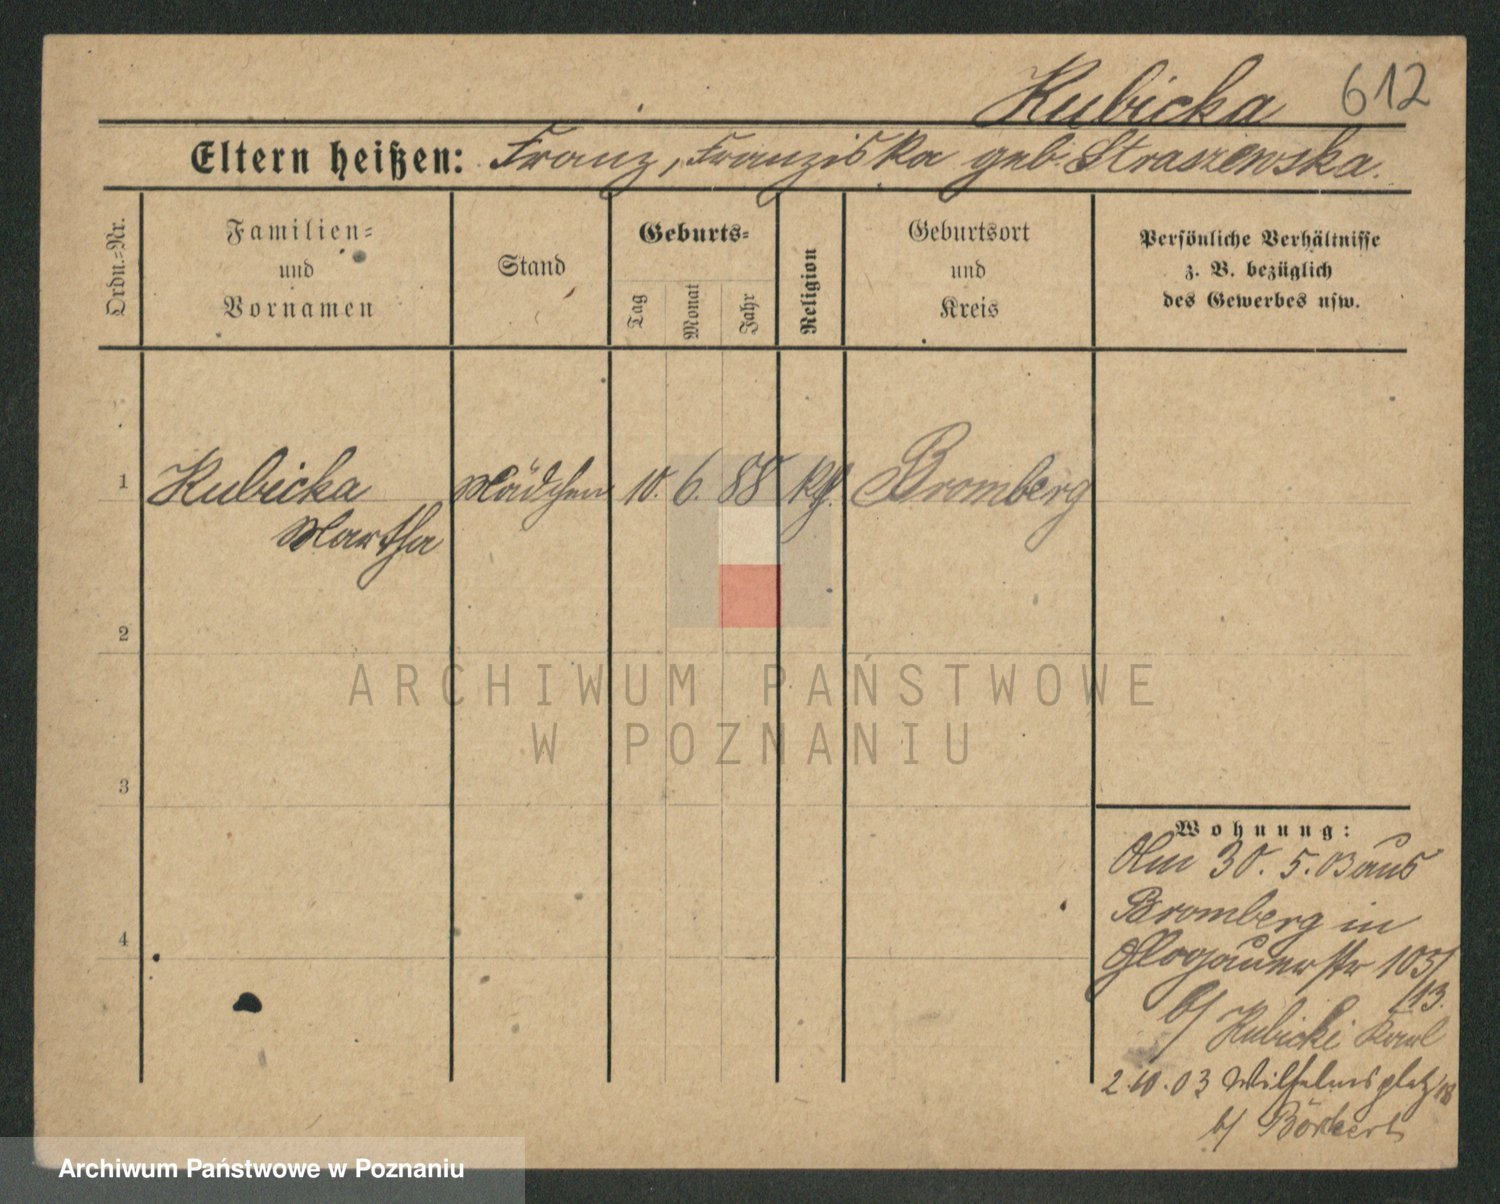 Kubicka 612
Eltern heißen: Franz, Franziska geb. Straszewska.
Ordn.-Nr.
Familien-
und
Vornamen
Stand
Geburts-
Tag
Monat
Jahr
Religion
Geburtsort
und
Kreis
Persönliche Verhältnisse
z. B. bezüglich
des Gewerbes usw.
1 Kubicka Mädchen 10. 6. 88 kth. Bromberg
Martha
2
3
4
Wohnung:
Am 30. 5. 03 aus
Bromberg in
Glogauerstr 105/
/13.
b/ Kubicki Karl
2.10.03 Wilhelmsplatz 18
b/
ARCHIWUM PAŃSTWOWE
W POZNANIU
Archiwum Państwowe w Poznaniu